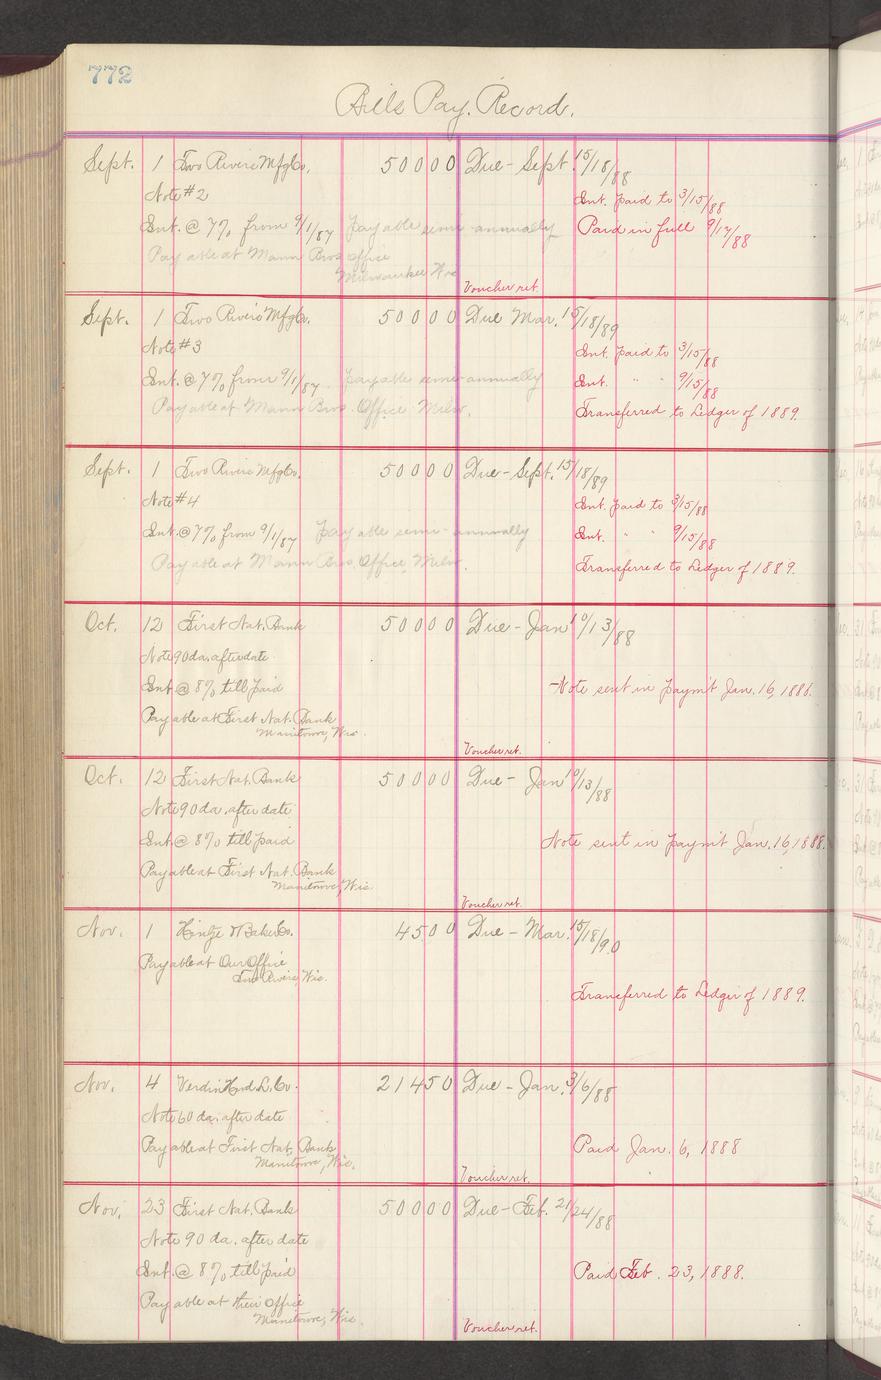 772
Bills Pay. Record.
Sept. 1 Two Rivers Mfg Co. 50000 Due - Sept. 15/18/88
Note #2 Int. paid to 3/15/88
Int. @ 7% from 9/1/87 Payable semi-annually Paid in full 9/17/88
Payable at Mann Bros office
Milwaukee Wis
Voucher ret.
Sept. 1 Two Rivers Mfg Co. 50000 Due Mar. 15/18/89
Note #3 Int. paid to 3/15/88
Int. @ 7% from 9/1/87. Payable semi-annually Int. " " 9/15/88
Payable at Mann Bros. Office Milw. Transferred to Ledger of 1889.
Sept. 1 Two Rivers Mfg Co. 50000 Due - Sept. 15/18/89
Note #4 Int. paid to 3/15/88
Int. @ 7% from 9/1/87 Payable semi-annually Int. " " 9/15/88
Payable at Mann Bros. Office, Milw. Transferred to Ledger of 1889.
Oct. 12 First Nat. Bank 50000 Due - Jan 10/13/88
Note 90 da. after date
Int. @ 8% till paid Note sent in paym't Jan. 16, 1888.
Payable at First Nat. Bank
Manitowoc, Wis.
Voucher ret.
Oct. 12 First Nat. Bank 50000 Due - Jan 10/13/88
Note 90 da. after date
Int. @ 8% till paid Note sent in paym't Jan. 16, 1888.
Payable at First Nat. Bank
Manitowoc, Wis
Voucher ret.
Nov. 1 Hintze & Baker Co. 4500 Due - Mar. 15/18/90
Payable at Our Office
Two Rivers, Wis.
Transferred to Ledger of 1889.
Nov. 4 Verdin Hnd. L. Co. 21450 Due - Jan. 3/6/88
Note 60 da. after date
Payable at First Nat. Bank Paid Jan. 6, 1888
Manitowoc, Wis.
Voucher ret.
Nov. 23 First Nat. Bank 50000 Due - Feb. 21/24/88
Note 90 da. after date
Int. @ 8% till paid Paid Feb. 23, 1888.
Payable at their Office
Manitowoc, Wis.
Voucher ret.